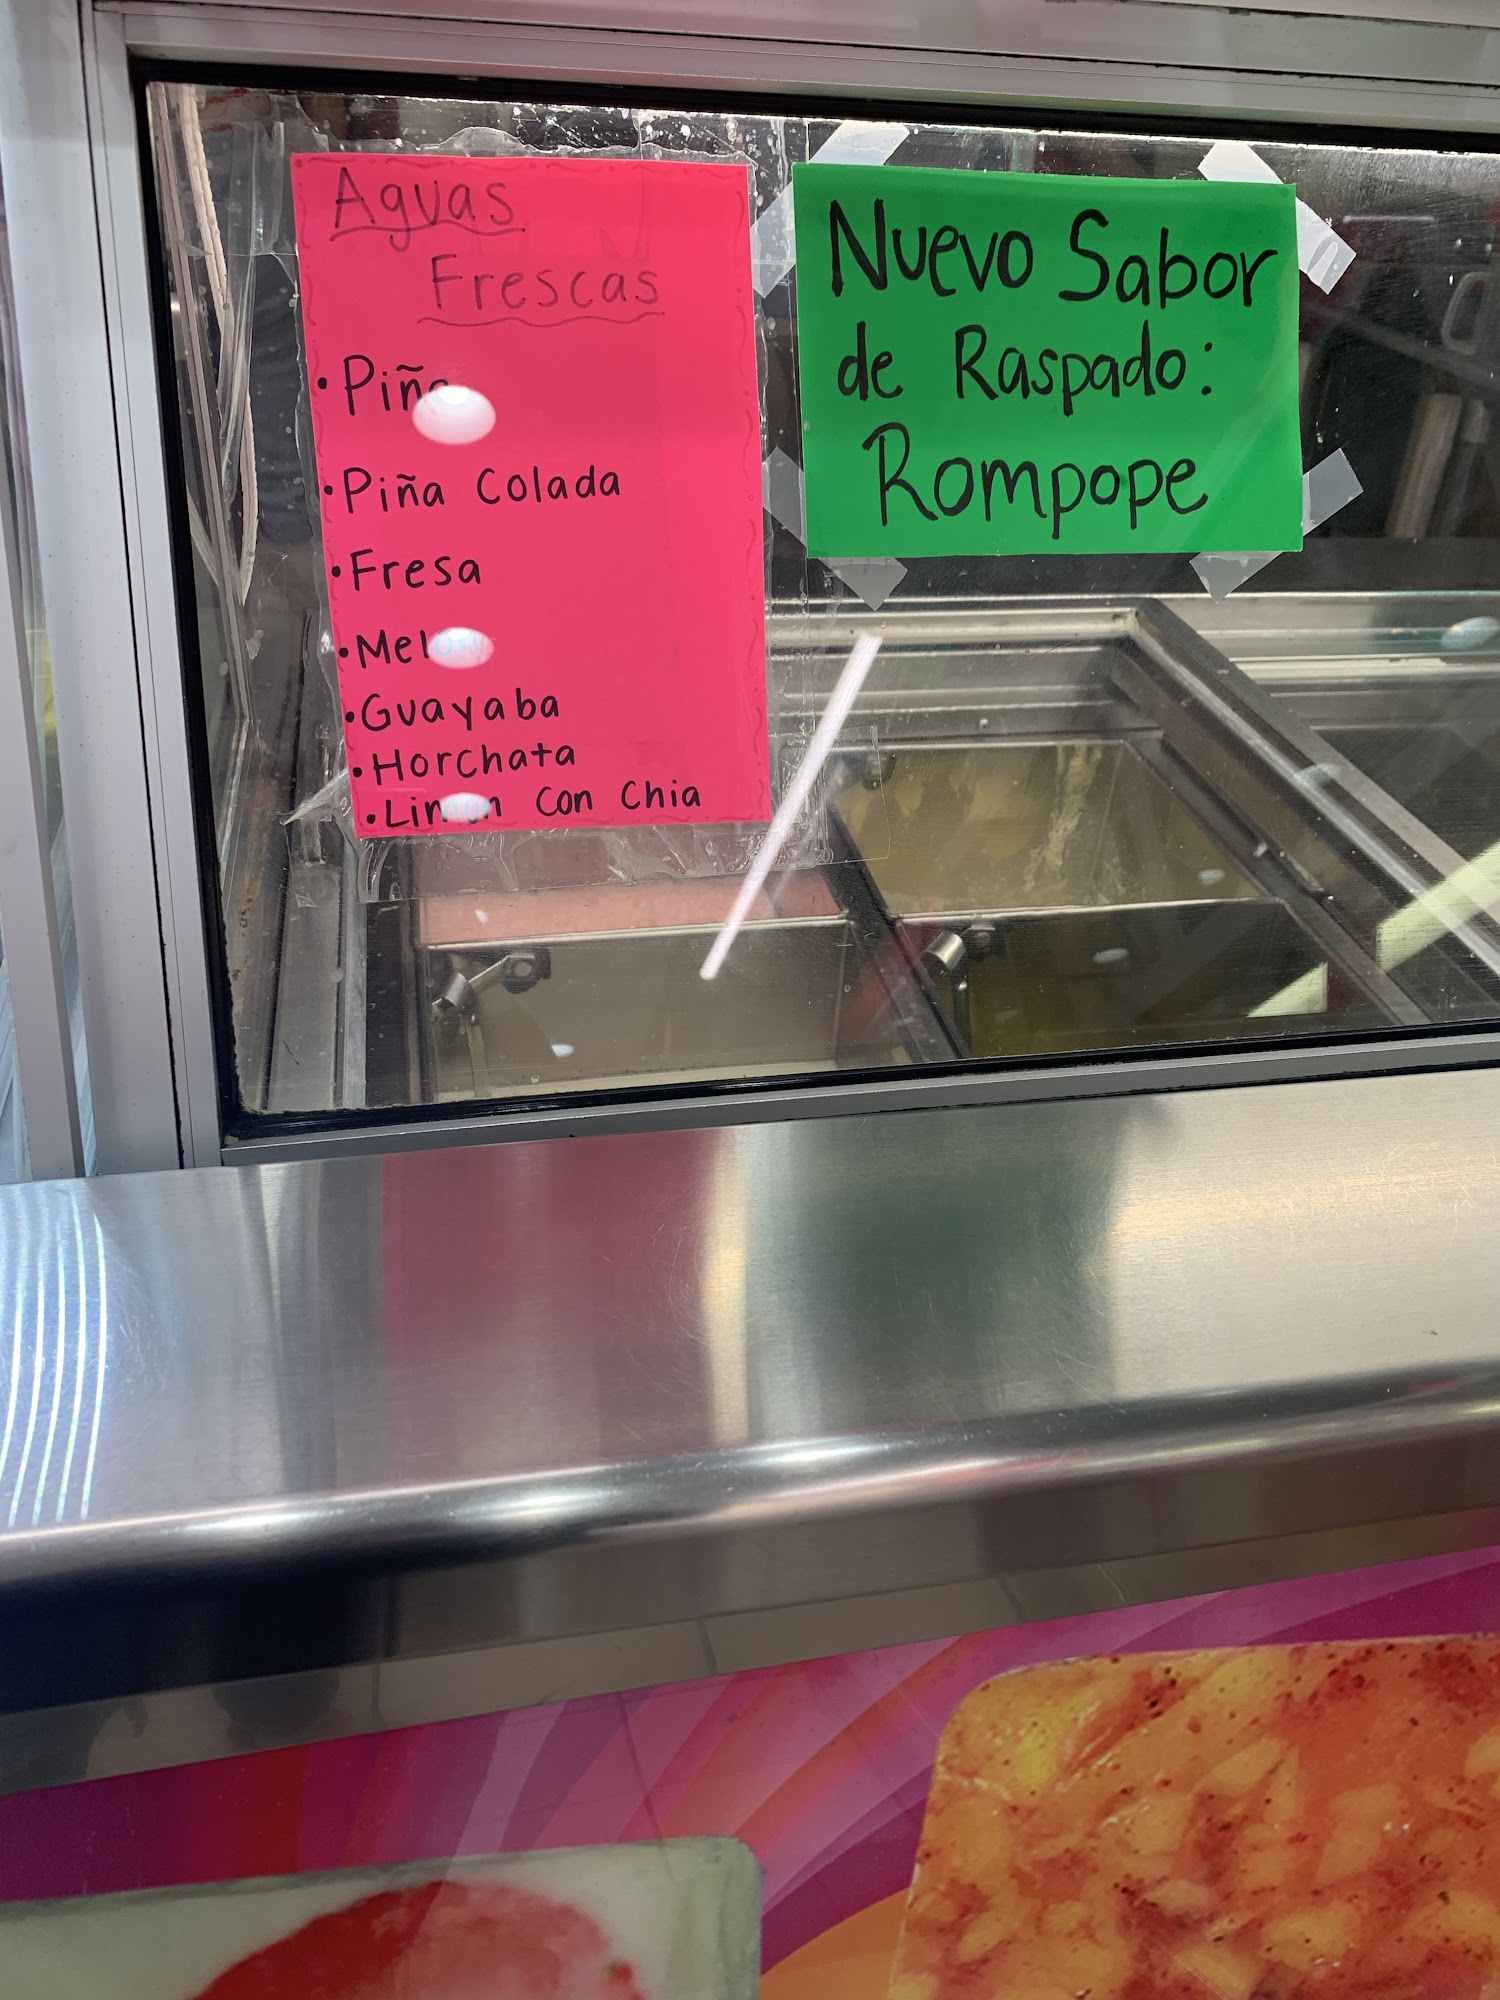 Aguas
Frescas
• Piña
• Piña Colada
• Fresa
• Melon
• Guayaba
• Horchata
• Limon Con Chia
Nuevo Sabor
de Raspado:
Rompope